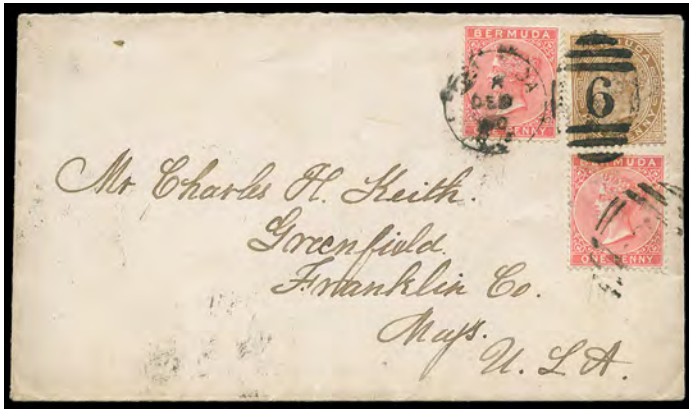 BERMUDA
ONE PENNY
6
BERMUDA
ONE PENNY
DE 9
Mr Charles H. Keith.
Greenfield.
Franklin Co.
Mass.
U. S. A.